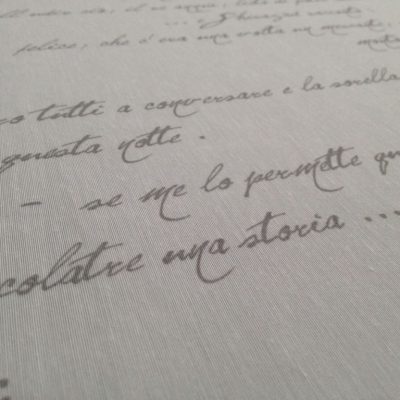 felice, che c'era una volta un
co tutti a conversare e la sorella
questa notte.
- se me lo permette qu
colatre una storia ...